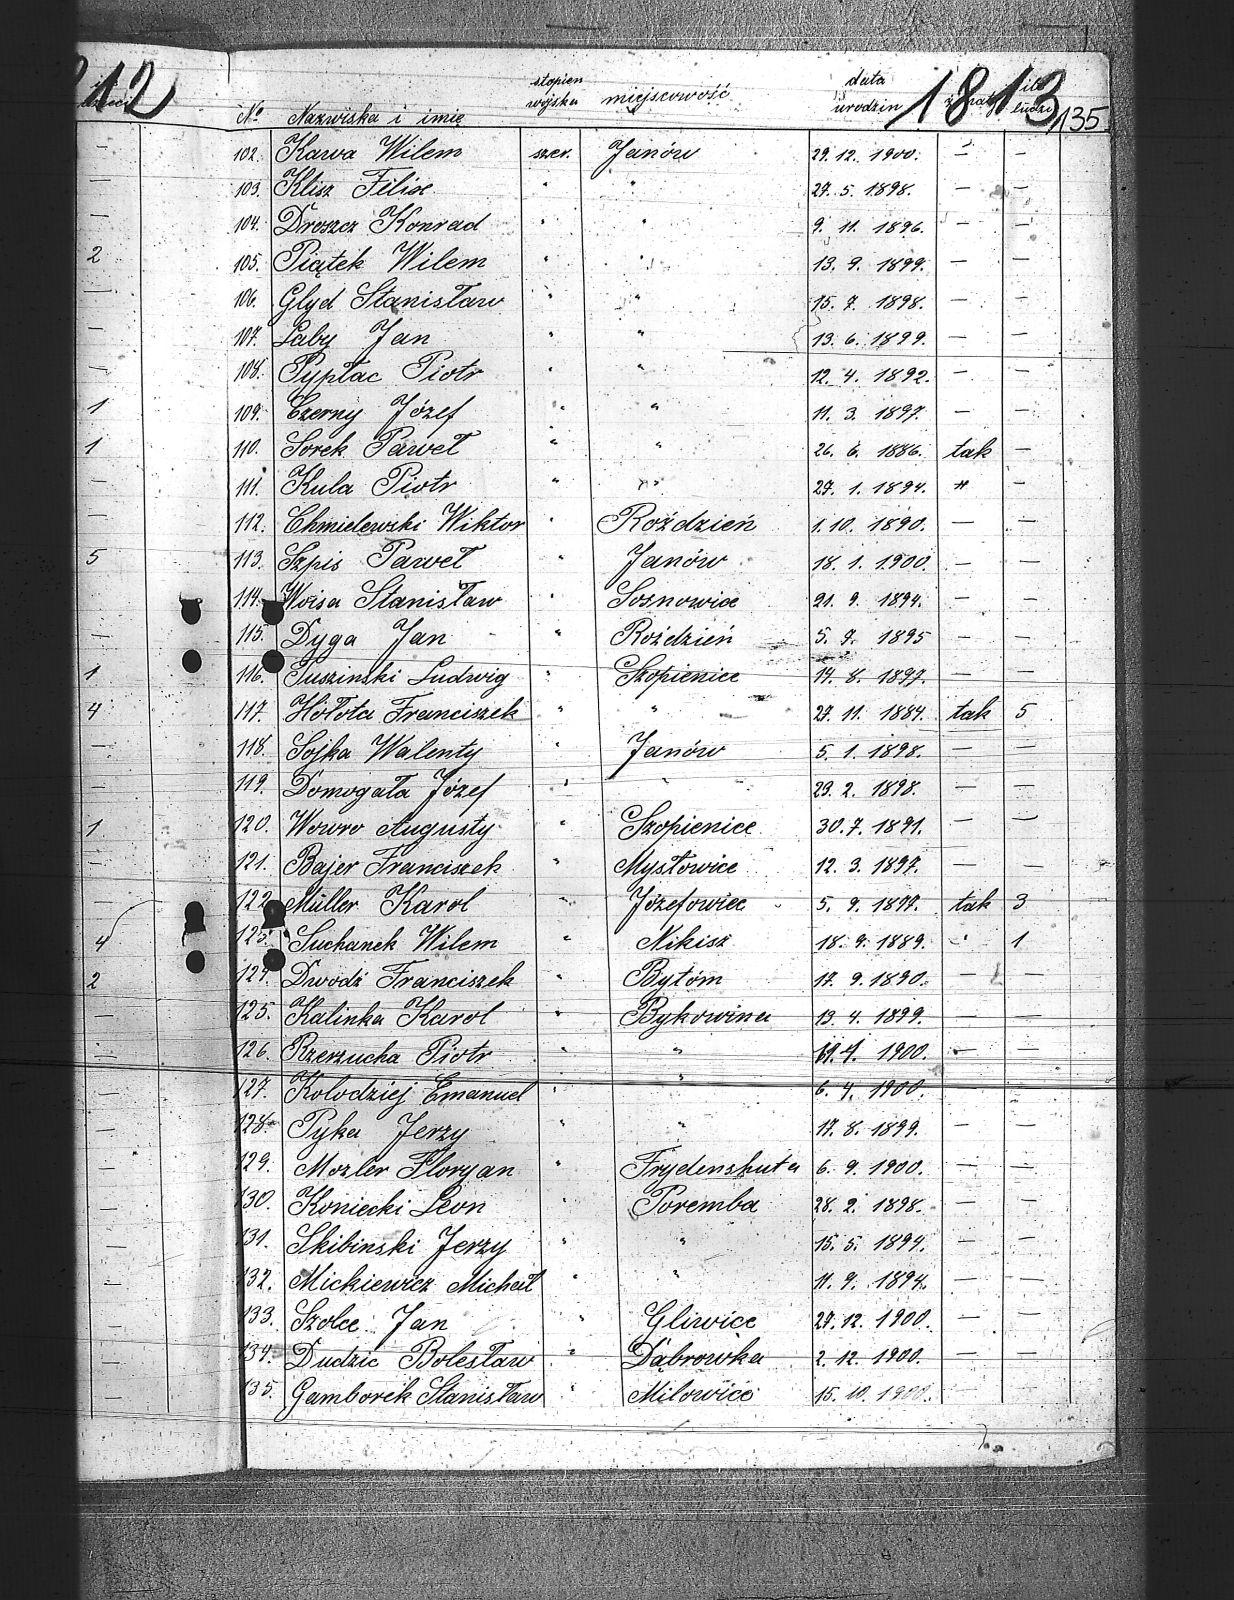 212
1813
135
№ Nazwiska i imię stopien wojska miejscowość data urodzin ile
102. Kawa Wilem szer. Janów 29. 12. 1900. — —
103. Klisz Felix " " 27. 5. 1898. — —
104. Droszcz Konrad " " 9. 11. 1896. — —
2 105. Piątek Wilem " " 13. 9. 1899. — —
106. Glyd Stanisław " " 15. 7. 1898. — —
107. Laby Jan " " 13. 6. 1899. — —
108. Pypłac Piotr " " 12. 4. 1892. — —
1 109. Czerny Józef " " 11. 3. 1897. — —
1 110. Sorek Paweł " " 26. 6. 1886. tak —
111. Kula Piotr " " 27. 1. 1894. " —
112. Chmielewski Wiktor " Roździeń 1. 10. 1890. — —
5 113. Szpis Paweł " Janów 18. 1. 1900. — —
114. Woisa Stanisław " Sosnowice 21. 9. 1894. — —
115. Dyga Jan " Roździeń 5. 7. 1895 — —
1 116. Tuszinski Ludwig " Szopienice 14. 8. 1897. — —
4 117. Hołota Franciszek " " 27. 11. 1884. tak 5
118. Sojka Walenty " Janów 5. 1. 1898. — —
119. Domogała Józef " " 29. 2. 1898. — —
1 120. Wowro Augusty " Szopienice 30. 7. 1891. — —
121. Bajer Franciszek " Mysłowice 12. 3. 1897. — —
122. Müller Karol " Józefowice 5. 9. 1877. tak 3
4 123. Suchanek Wilem " Nikisz 18. 9. 1889. " 1
2 124. Dwodź Franciszek " Bytom 17. 9. 1890. — —
125. Kalinka Karol " Bykowina 13. 4. 1899. — —
126. Rzerzucha Piotr " " 1900. — —
127. Kolodziej Emanuel " " 6. 4. 1900. — —
128. Pyka Jerzy " " 17. 8. 1899. — —
129. Mozler Floryan " Frydenshuta 6. 9. 1900. — —
130. Koniecki Leon " Poremba 28. 2. 1898. — —
131. Skibinski Jerzy " " 15. 5. 1894. — —
132. Mickiewicz Michał " " 11. 9. 1894. — —
133. Szolce Jan " Gliwice 27. 12. 1900. — —
134. Dudzic Bolesław " Dąbrowka 2. 12. 1900. — —
135. Gamborek Stanisław " Milowice 15. 10. 1900. — —